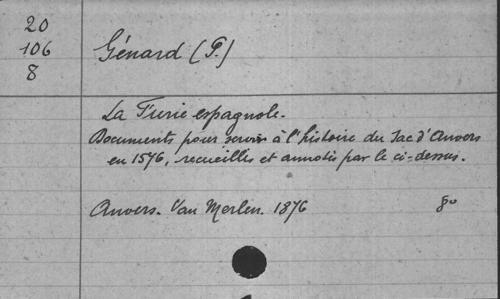 20
106
8
Génard (P.)
La Furie espagnole.
Documents pour servir à l'histoire du Sac d'Anvers
en 1576, recueillis et annotés par le ci-dessus.
Anvers. Van Merlen. 1876 8o